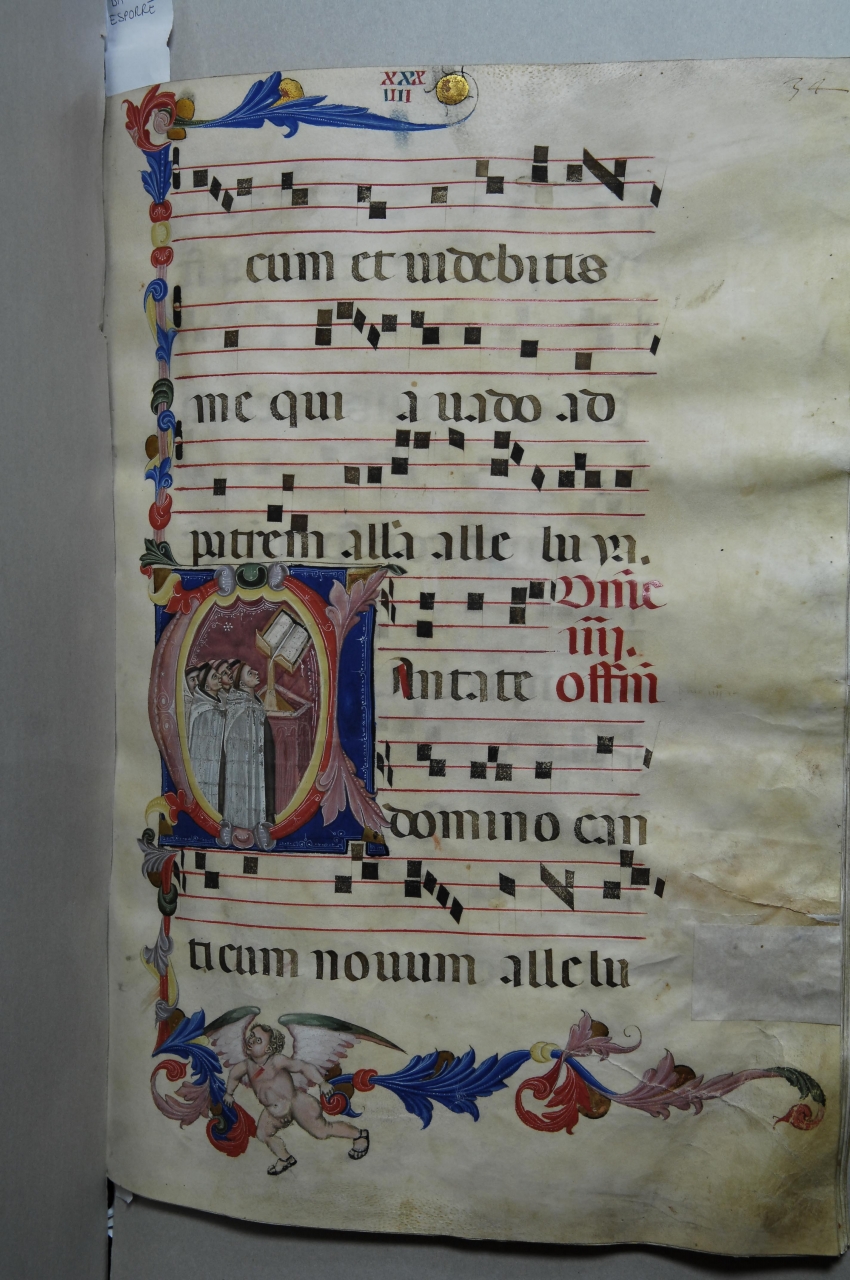 ESPORRE
XXX
IIII
34
cum et uidebitis
me qui a uado ad
patrem alla alle lu ya.
Dn̄ice
iiij.
Antate offm̄
domino can
ticum nouum allelu